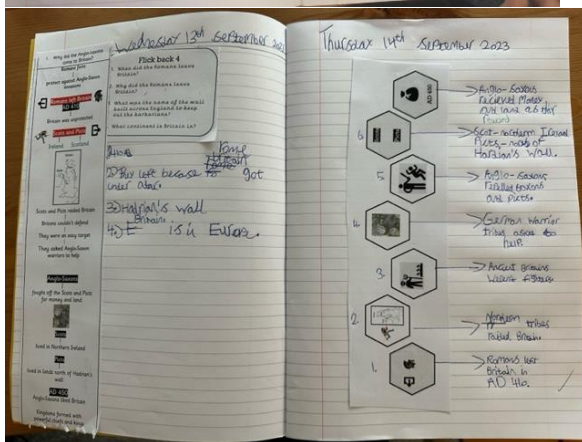 1. Why did the Anglo-Saxons
come to Britain?
Romans forts
protect against Anglo-Saxon
invasions
Romans left Britain
AD 410
Britain was unprotected
Scots and Picts
Ireland Scotland
Scots and Picts raided Britain
Britons couldn't defend
They were an easy target
They asked Anglo-Saxon
warriors to help
Anglo-Saxons
fought off the Scots and Picts
for money and land.
Scots
lived in Northern Ireland
Picts
lived in lands north of Hadrian's
wall
AD 450
Anglo-Saxons liked Britain
Kingdoms formed with
powerful chiefs and kings
Wednesday 13th September 2023
Flick back 4
1. When did the Romans leave
Britain?
2. Why did the Romans leave
Britain?
3. What was the name of the wall
built across England to keep
out the barbarians?
What continent is Britain in?
Rome
2) They left becase got
under atack.
3) Hadrian's wall
4) Britain is in Europe.
Thursday 14th September 2023
AD 450
Anglo-Saxons
recieved money
and land as their
reward
6.
Scot-northern Ireland
Picts-north of
Hadrian's wall.
5.
Anglo-Saxons
and picts.
4.
German warrior
tribes
help.
3.
Ancient Britons
fighters
2.
Northern tribes
raided Britain.
1.
Romans left
Britain in
AD 410.